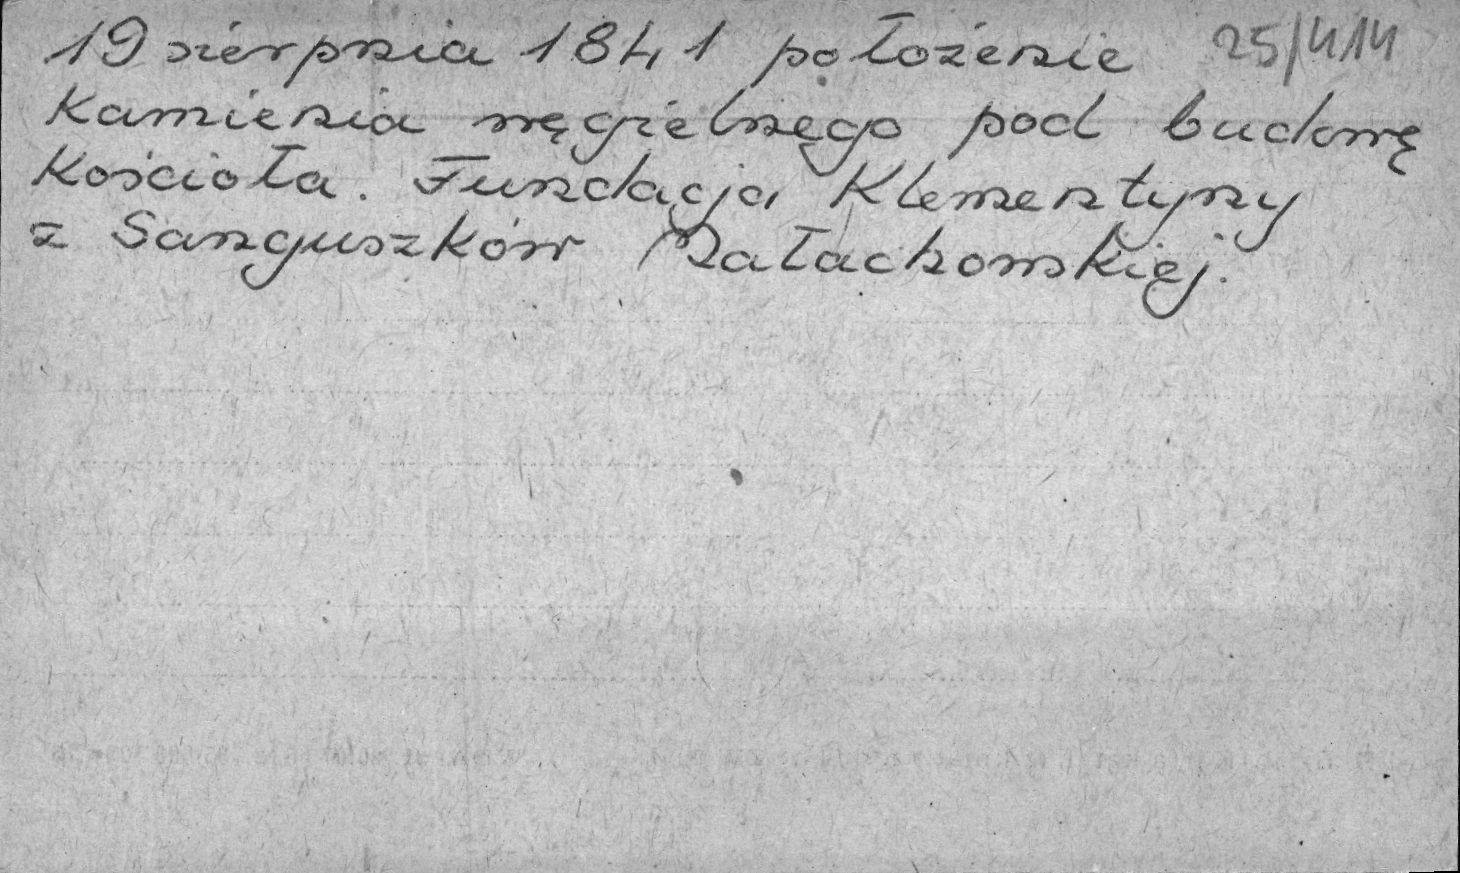 19 sierpnia 1841 położenie 25/414
Kamienia węgielnego pod budowę
Kościoła. Fundacja Klementyny
z Sanguszków Małachowskiej.